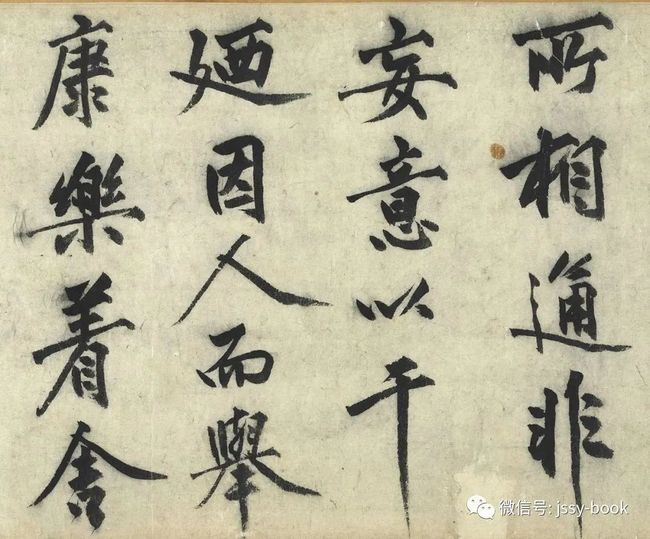 所相通非
妄意以干
廼因人而舉
康樂着舍
微信号: jssy-book